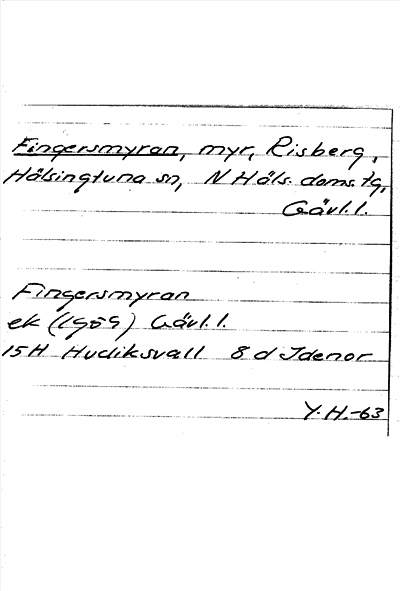 Fingersmyran, myr, Risberg,
Hälsingtuna sn, N Häls. doms. tg,
Gävl. l.
Fingersmyran
ek (1959) Gävl. l.
15H Hudiksvall 8 d Idenor
Y. H.-63